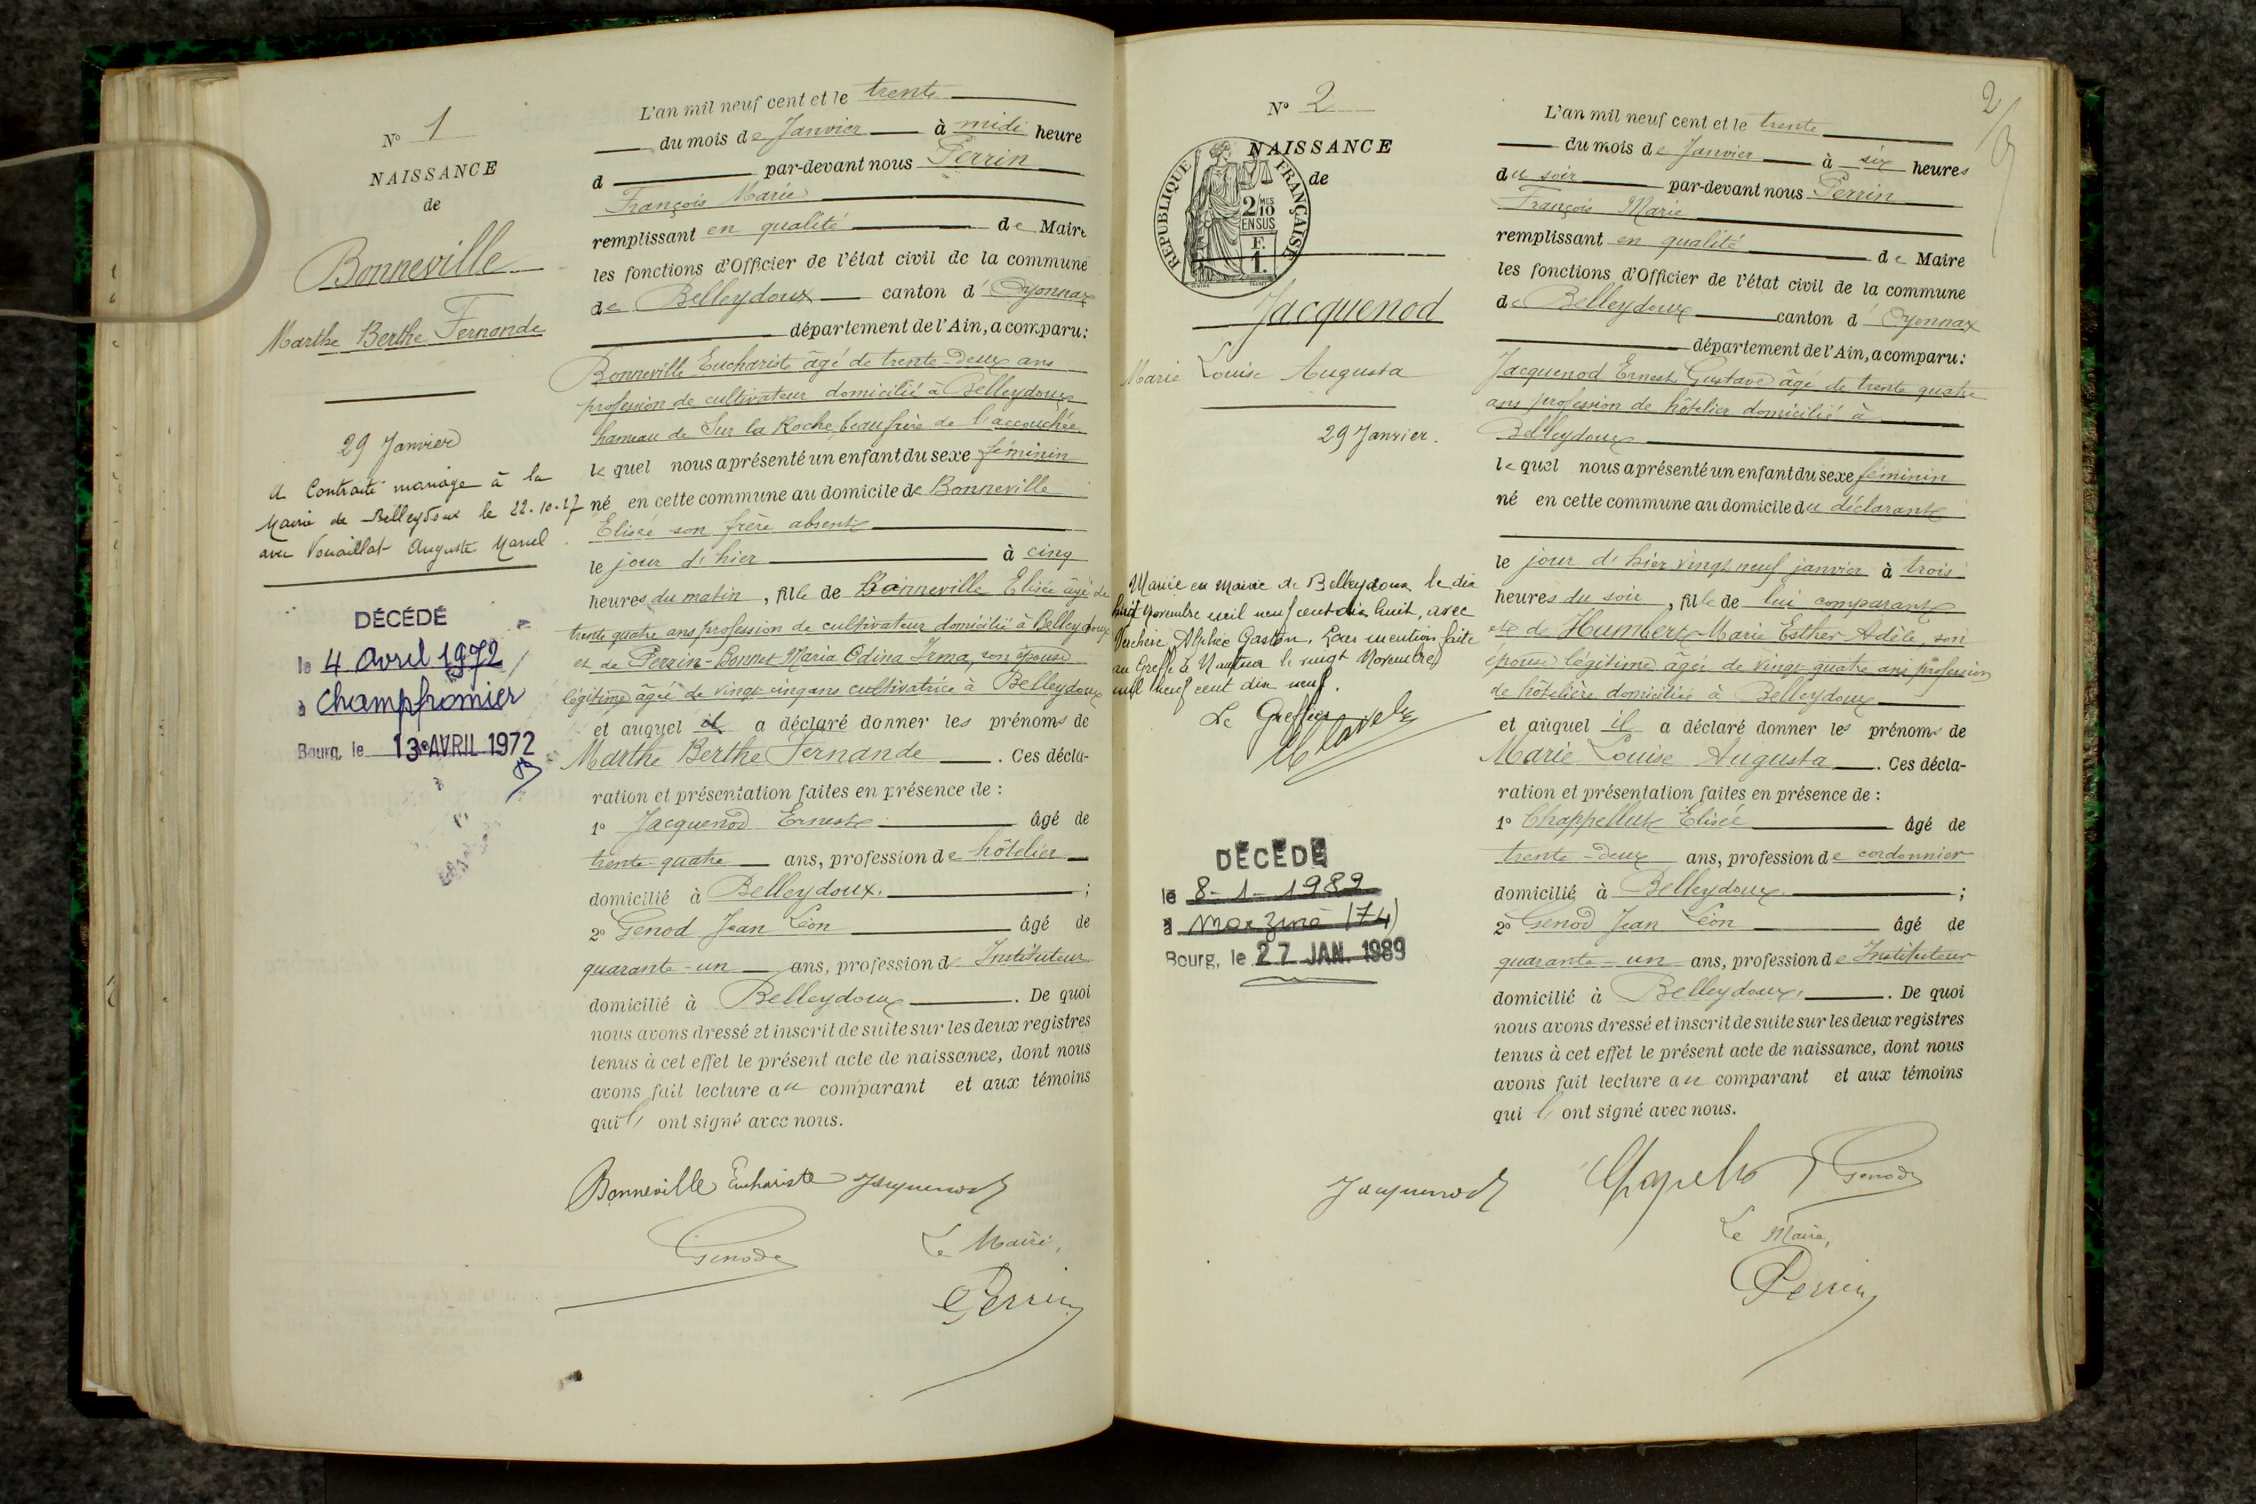 N° 1
NAISSANCE
de
Bonneville
Marthe Berthe Fernande
29 Janvier
a Contracté mariage à la
Mairie de Belleydoux le 22.10.27
avec Vouaillat Auguste Marcel
DÉCÉDÉ
le 4 avril 1972
à Champfromier
Bourg, le 13 AVRIL 1972
L'an mil neuf cent et le trente
du mois de Janvier à midi heure
d par-devant nous Perrin
François Marie
remplissant en qualité de Maire
les fonctions d'Officier de l'état civil de la commune
de Belleydoux canton d'Oyonnax
département de l'Ain, a comparu:
Bonneville Euchariste âgé de trente-deux ans
profession de cultivateur domicilié à Belleydoux
hameau de Sur la Roche, beau frère de l'accouchée
lequel nous a présenté un enfant du sexe féminin
né en cette commune au domicile de Bonneville
Elisée son frère absent
le jour d'hier à cinq
heures du matin, fille de Bonneville Elisée âgé de
trente quatre ans profession de cultivateur domicilié à Belleydoux
et de Perrin-Bonnet Maria Odina Irma, son épouse
légitime âgée de vingt-cinq ans cultivatrice à Belleydoux
et auquel il a déclaré donner les prénoms de
Marthe Berthe Fernande. Ces décla-
ration et présentation faites en présence de :
1° Jacquenod Ernest âgé de
trente-quatre ans, profession de hôtelier
domicilié à Belleydoux. ;
2° Genod Jean Léon âgé de
quarante-un ans, profession de Instituteur
domicilié à Belleydoux. De quoi
nous avons dressé et inscrit de suite sur les deux registres
tenus à cet effet le présent acte de naissance, dont nous
avons fait lecture au comparant et aux témoins
qui l' ont signé avec nous.
Bonneville Euchariste Jacquenod
Genod
Le Maire,
Perrin
2
N° 2
NAISSANCE
de
REPUBLIQUE FRANÇAISE
2 MES 10
EN SUS
F.
1.
Jacquenod
Marie Louise Augusta
29 Janvier.
Mariée en mairie de Belleydoux le dix
huit novembre mil neuf cent dix huit, avec
Gaston. Pour mention faite
au Greffe de Nantua le vingt Novembre
mil neuf cent dix neuf.
Le Greffier
DÉCÉDÉ
le 8-1-1989
à Morzine (74)
Bourg, le 27 JAN. 1989
L'an mil neuf cent et le trente
du mois de Janvier à six heures
du soir par-devant nous Perrin
François Marie
remplissant en qualité de Maire
les fonctions d'Officier de l'état civil de la commune
de Belleydoux canton d'Oyonnax
département de l'Ain, a comparu:
Jacquenod Ernest Gustave âgé de trente quatre
ans profession de hôtelier domicilié à
Belleydoux
lequel nous a présenté un enfant du sexe féminin
né en cette commune au domicile du déclarant
le jour d'hier vingt neuf janvier à trois
heures du soir, fille de lui comparant
et de Humbert Marie Esther Adèle, son
épouse légitime âgée de vingt-quatre ans profession
de hôtelière domiciliée à Belleydoux
et auquel il a déclaré donner les prénoms de
Marie Louise Augusta. Ces décla-
ration et présentation faites en présence de :
1° Chappelluz Elisée âgé de
trente-deux ans, profession de cordonnier
domicilié à Belleydoux. ;
2° Genod Jean Léon âgé de
quarante-un ans, profession de Instituteur
domicilié à Belleydoux. De quoi
nous avons dressé et inscrit de suite sur les deux registres
tenus à cet effet le présent acte de naissance, dont nous
avons fait lecture au comparant et aux témoins
qui l' ont signé avec nous.
Jacquenod Genod
Le Maire,
Perrin